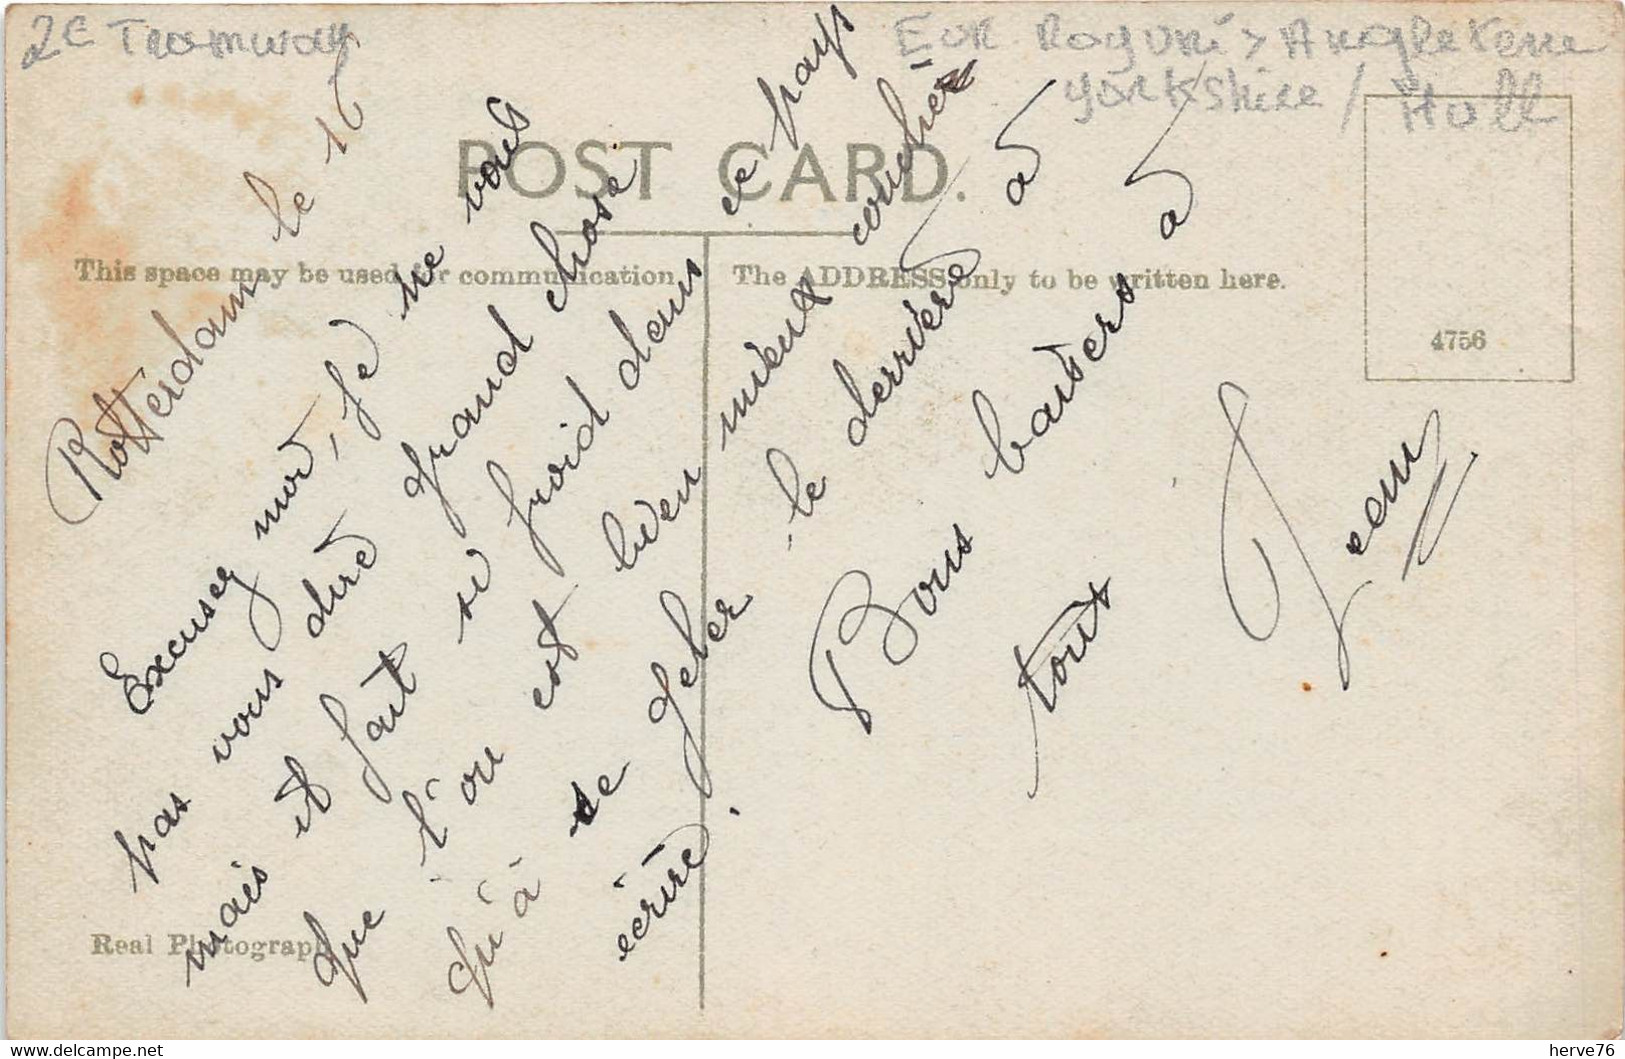 2E Tramway
Eur Royuni > Angleterre
Yorkshire / Hull
POST CARD.
This space may be used for communication.
The ADDRESS only to be written here.
4756
Rotterdam le 16
Excusez moi, je ne vais
pas vous dire grand chose
mais il fait si froid dans ce pays
que l'on est bien mieux couchés
qu'à se geler le derrière à
écrire.
Bons baisers à
tous
Jean
Real Photograph
herve76